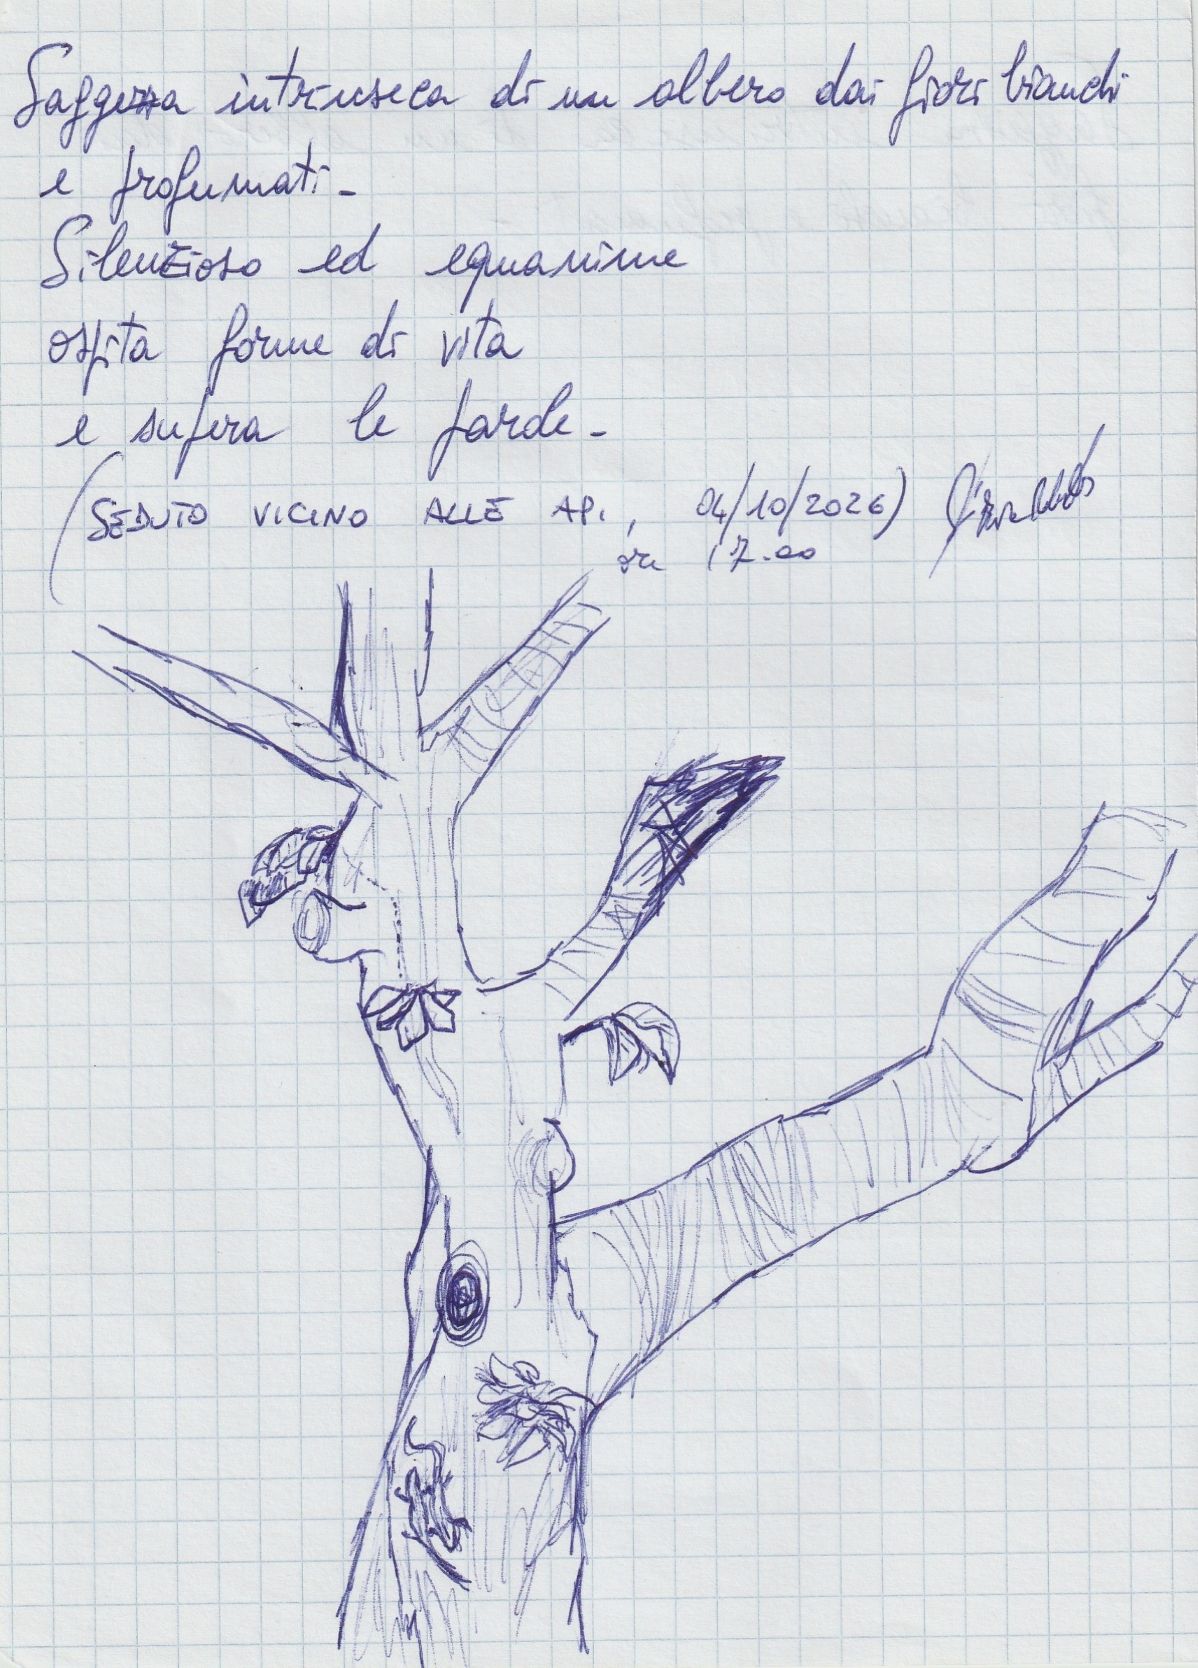 Saggezza intrinseca di un albero dai fiori bianchi
e profumati -
Silenzioso ed equanime
ospita forme di vita
e supera le parole -
(SEDUTO VICINO ALLE API, 04/10/2026)
ore 17.00